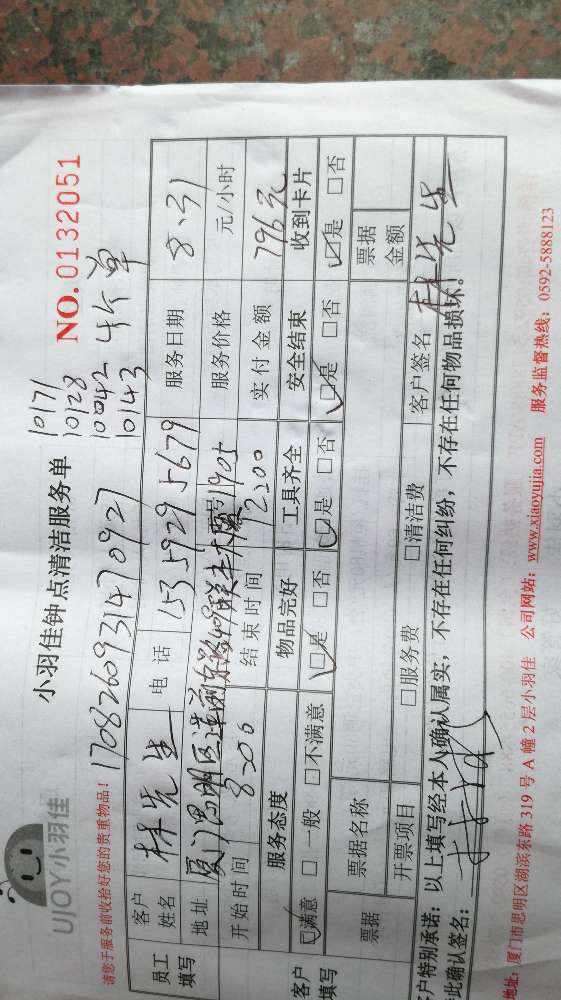 UJOY小羽佳
小羽佳钟点清洁服务单
NO.0132051
10171
10128
10042 4个单
10143
请您于服务前收拾好您的贵重物品!
1708260931470927
员工填写
客户姓名 林先生 电话 15359295679 服务日期 8、31
地址 服务价格 元/小时
开始时间 8:00 结束时间 12:00 实付金额 796元
客户填写
服务态度 物品完好 工具齐全 安全结束 收到卡片
☑满意 □一般 □不满意 ☑是 □否 ☑是 □否 ☑是 □否 ☑是 □否
票据 票据名称 票据金额
开票项目 □服务费 □清洁费 客户签名 林先生
客户特别承诺:以上填写经本人确认属实,不存在任何纠纷,不存在任何物品损坏。
此确认签名:
地址:厦门市思明区湖滨东路319号A幢2层小羽佳 公司网站:www.xiaoyujia.com 服务监督热线:0592-5888123